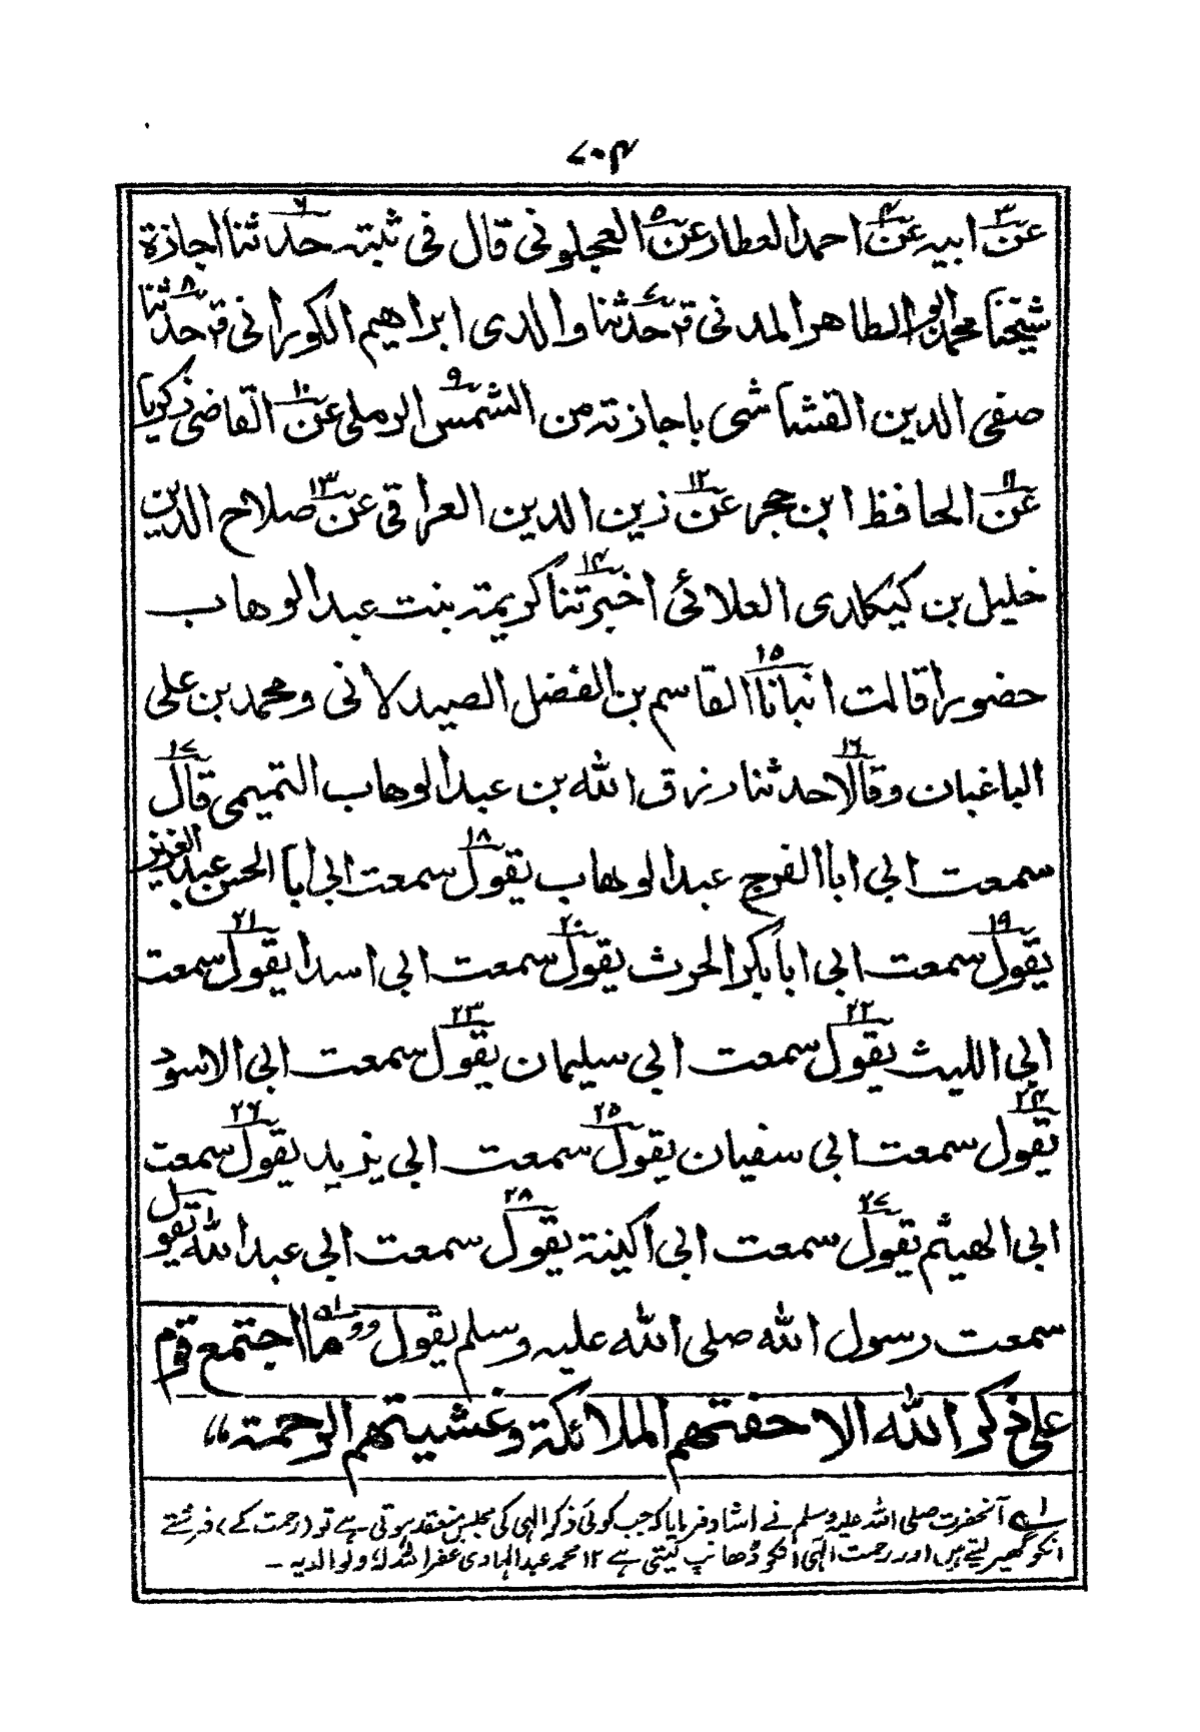 ۷۰۴
عن۳ ابيه عن۴ احمد العطار عن۵ العجلونى قال فى ثبته حدثنا۶ اجازة
شيخنا محمد ابو الطاهر المدنى ۷ حدثنا والدى ابراهيم الكورانى ۸ حدثنا
صفى الدين القشاشى باجازته من الشمس۹ الرملى عن۱۰ القاضى زكريا
عن۱۱ الحافظ ابن حجر عن۱۲ زين الدين العراقى عن۱۳ صلاح الدين
خليل بن كيكلدى العلائى اخبرتنا۱۴ كريمة بنت عبد الوهاب
حضورا قالت انبأنا۱۵ القاسم بن الفضل الصيدلانى ومحمد بن على
الباغبان وقالا۱۶ حدثنا رزق الله بن عبد الوهاب التميمى قال۱۷
سمعت ابى ابا الفرج عبد الوهاب يقول۱۸ سمعت ابى ابا الحسن عبد العزيز
يقول۱۹ سمعت ابى ابا بكر الحرث يقول۲۰ سمعت ابى اسدا يقول۲۱ سمعت
ابى الليث يقول۲۲ سمعت ابى سليمان يقول۲۳ سمعت ابى الاسود
يقول۲۴ سمعت ابى سفيان يقول۲۵ سمعت ابى يزيد يقول۲۶ سمعت
ابى الهيثم يقول۲۷ سمعت ابى اكينة يقول۲۸ سمعت ابى عبد الله يقول
سمعت رسول الله صلى الله عليه وسلم يقول ”ما اجتمع قوم
على ذكر الله الا حفتهم الملائكة وغشيتهم الرحمة“
۱؎ آنحضرت صلی اللہ علیہ وسلم نے ارشاد فرمایا کہ جب کوئی ذکر الہی کی مجلس منعقد ہوتی ہے تو (رحمت کے) فرشتے
انکو گھیر لیتے ہیں اور رحمت الٰہی انکو ڈھانپ لیتی ہے ۱۲ محمد عبد الہادی غفر اللہ لہٗ ولوالدیہ ۔